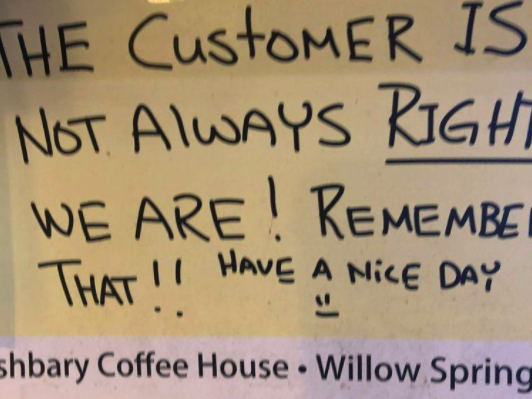 THE CUSTOMER IS
NOT AlWAYS RIGHT
WE ARE! REMEMBER
THAT!! HAVE A NiCE DAY
shbary Coffee House • Willow Spring